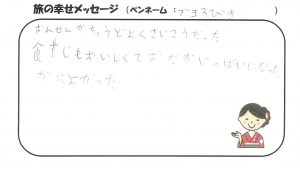 旅の幸せメッセージ (ペンネーム:づまろびき)
おんせんがちょうどよくさいこうだった
食じもおいしくておなかいっぱいだった
からよかった